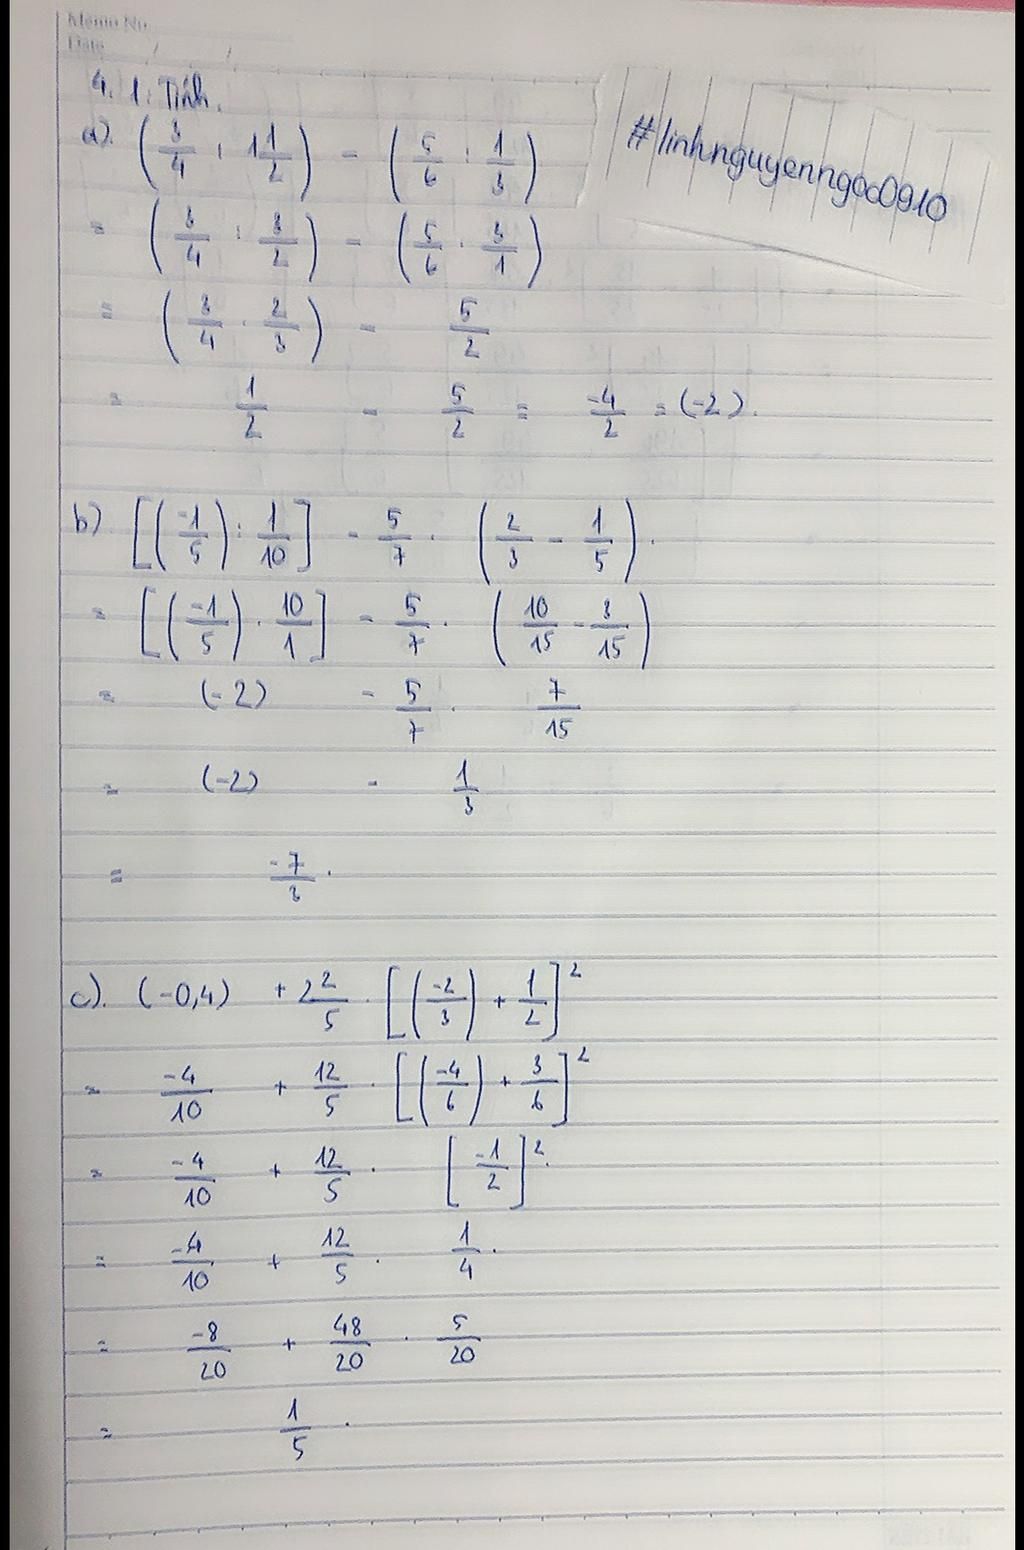 Memo No.
Date / /
4.1: Tính.
#linhnguyenngoc0910
a). (3/4 : 1 1/2) - (5/6 : 1/3)
= (3/4 : 3/2) - (5/6 . 3/1)
= (3/4 . 2/3) - 5/2
= 1/2 - 5/2 = -4/2 = (-2).
b) [(-1/5) : 1/10] - 5/7 . (2/3 - 1/5).
= [(-1/5) . 10/1] - 5/7 . (10/15 - 3/15)
= (-2) - 5/7 . 7/15
= (-2) - 1/3
= -7/3.
c). (-0,4) + 2 2/5 . [(-2/3) + 1/2]²
= -4/10 + 12/5 . [(-4/6) + 3/6]²
= -4/10 + 12/5 . [-1/2]².
= -4/10 + 12/5 . 1/4.
= -8/20 + 48/20 . 5/20
= 1/5.